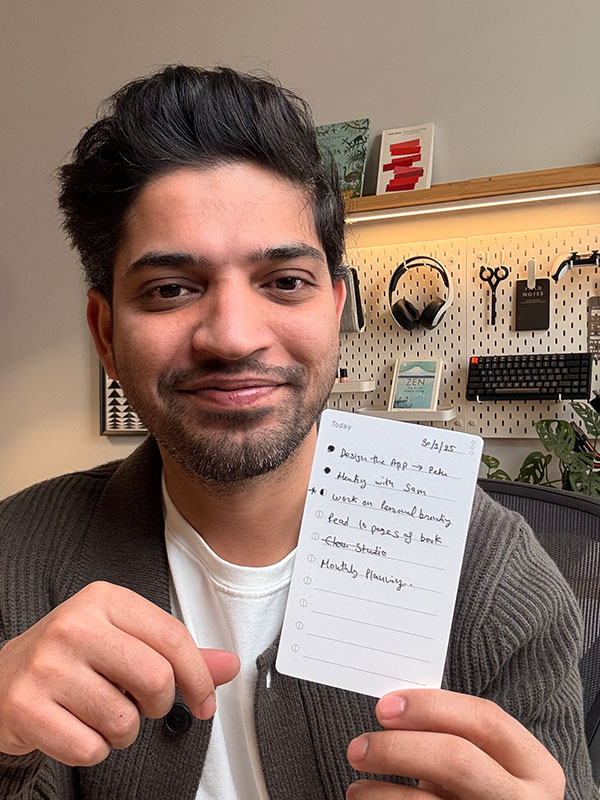 FIELD NOTES
ZEN
Today
Design the App →
Meeting with Sam
Work on Personal branding
Read 10 pages of book
Clean Studio
Monthly Planning..